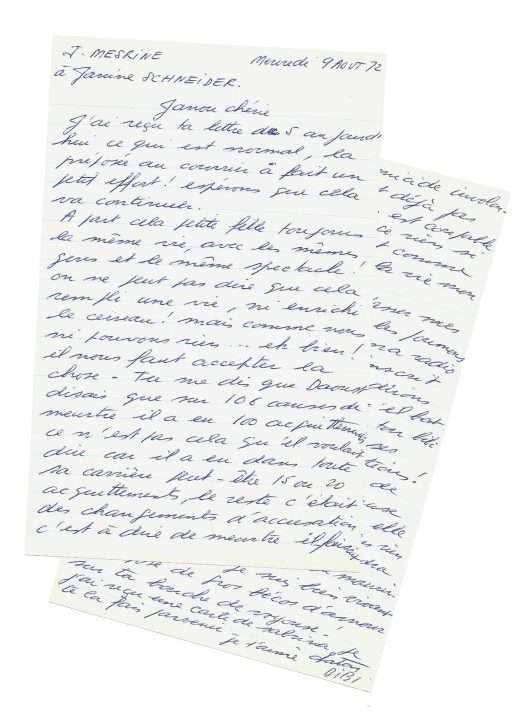 J. MESRINE
Mercredi 9 AOUT 72
à Janine SCHNEIDER.
Janou chérie
J'ai reçu ta lettre du 5 aujourd'
hui ce qui est normal, la
préposée au courrier à fait un
petit effort! espérons que cela
va continuer.
A part cela petite fille toujours
la même vie, avec les mêmes
gens et le même spectacle!
on ne peut pas dire que cela
rempli une vie, ni enrichi
le cerveau! mais comme nous
ni pouvons rien... eh bien!
il nous faut accepter la
chose - Tu me dis que Daoust
disais que sur 106 causes de
meurtre il a eu 100 acquittements
ce n'est pas cela qu'il voulait
dire car il a eu dans toute
sa carrière peut-être 15 ou 20
acquittements, le reste c'était
des changements d'accusation
c'est à dire de meurtre il
déjà pas
est coupable
ce rien
comme
la vie mon
mes
les poumons
radio
inscrit
ton bébé
ses
de
elle
rien
mourir
je suis bien vivant
de gros bécos d'amour
sur ta bouche de voyouse!
j'ai reçu une carte de sabrina je
te la fais parvenir
je t'aime
BIBI